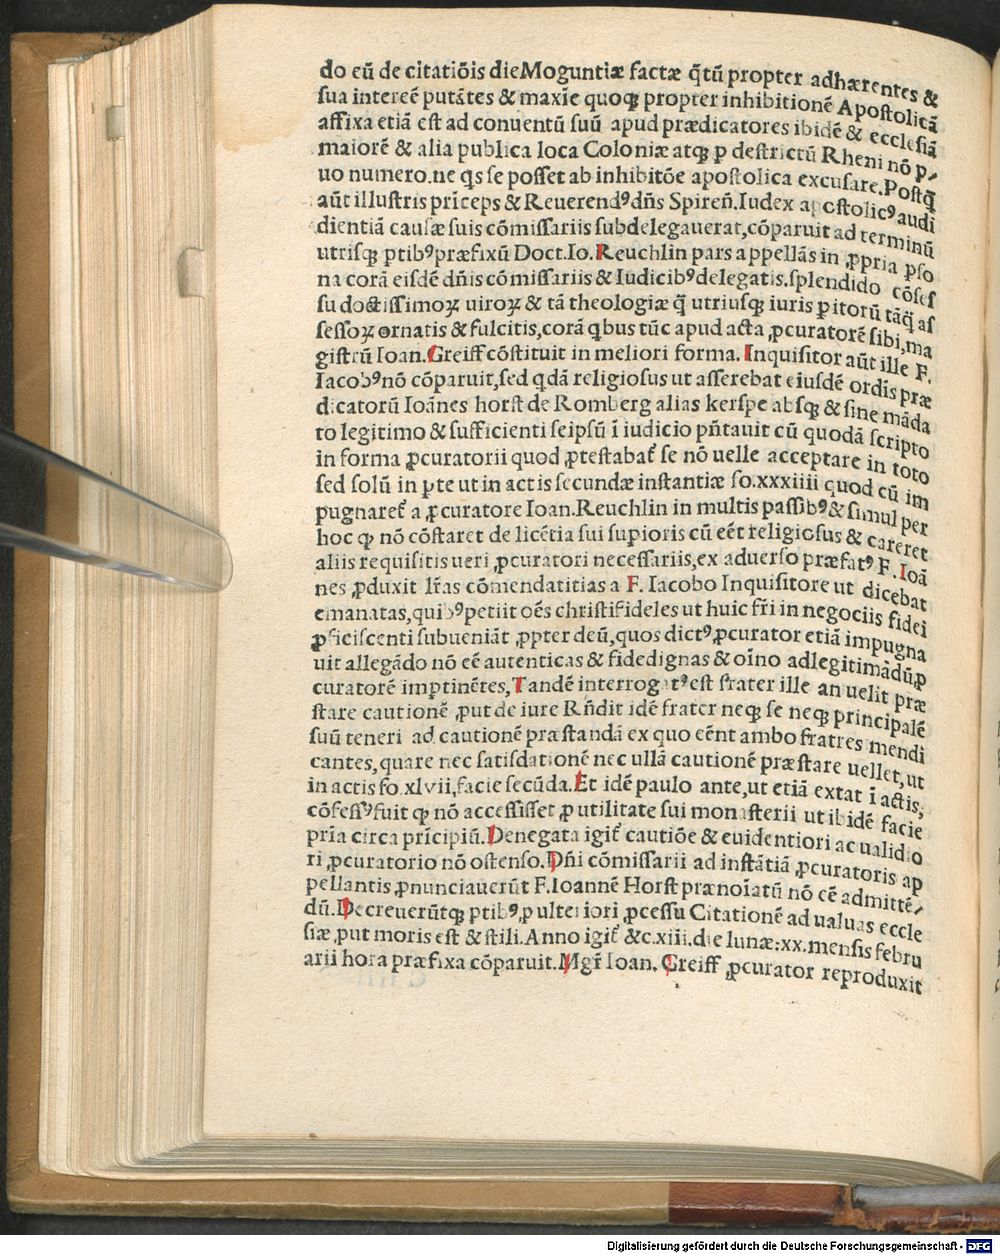 do eũ de citatiõis die Moguntiæ factæ q̃tũ propter adhærentes &
sua intereẽ putãtes & maxĩe quoqꝫ propter inhibitionẽ Apostolicã
affixa etiã est ad conuentũ suũ apud prædicatores ibidẽ & ecclesiã
maiorẽ & alia publica loca Coloniæ atqꝫ ꝑ destrictũ Rheni nõ p⸗
uo numero.ne q̃s se posset ab inhibitõe apostolica excusare.Postq̃
aũt illustris prĩceps & Reuerendꝰ dñs Spireñ.Iudex apostolicꝰ audi
dientiã causæ suis cõmissariis subdelegauerat,cõparuit ad terminũ
utrisqꝫ ꝑtibꝰ præfixũ Doct.Io.Reuchlin pars appellãs in ꝓpria ꝑso
na corã eisdẽ dñis cõmissariis & Iudicibꝰ delegatis.splendido cõses
su doctissimoꝝ uiroꝝ & tã theologiæ q̃ utriusqꝫ iuris ꝑitorũ tãq̃ as
sessoꝝ ornatis & fulcitis,corã qbus tũc apud acta ꝓcuratorẽ sibi,ma
gistrũ Ioan.Greiff cõstituit in meliori forma.Inquisitor aũt ille F.
Iacobꝰ nõ cõparuit,sed qdã religiosus ut asserebat eiusdẽ ordĩs præ
dicatorũ Ioãnes horst de Romberg alias kerspe absqꝫ & sine mãda
to legitimo & sufficienti seipsũ ĩ iudicio pñtauit cũ quodã scripto
in forma ꝓcuratorii quod ꝓtestabat̃ se nõ uelle acceptare in toto
sed solũ in ꝑte ut in actis secundæ instantiæ fo.xxxiiii quod cũ im
pugnaret̃ a ꝓcuratore Ioan.Reuchlin in multis passibꝰ & simul per
hoc ꝙ nõ cõstaret de licẽtia sui supioris cũ eẽt religiosus & careret
aliis requisitis ueri ꝓcuratori necessariis,ex aduerso præfatꝰ F.Ioã
nes ꝓduxit lr̃as cõmendatitias a F. Iacobo Inquisitore ut dicebat
emanatas,quibꝰ petiit oẽs christifideles ut huic fr̃i in negociis fidei
ꝓficiscenti subueniãt ꝓpter deũ,quos dictꝰ ꝓcurator etiã impugna
uit allegãdo nõ eẽ autenticas & fidedignas & oĩno adlegitimãdũ,ꝓ
curatorẽ imptinẽtes,Tandẽ interrogatꝰ est frater ille an uelit præ
stare cautionẽ ꝓut de iure Rñdit idẽ frater neqꝫ se neqꝫ principalẽ
suũ teneri ad cautionẽ præstandã ex quo eẽnt ambo fratres mendi
cantes,quare nec satisdationẽ nec ullã cautionẽ præstare uellet,ut
in actis fo.xlvii,facie secũda.Et idẽ paulo ante,ut etiã extat ĩ actis,
cõfessꝰ fuit ꝙ nõ accessisset ꝓ utilitate sui monasterii ut ibidẽ facie
pria circa prĩcipiũ.Denegata igit̃ cautiõe & euidentiori ac ualidio
ri ꝓcuratorio nõ ostenso.Dñi cõmissarii ad instãtiã ꝓcuratoris ap
pellantis ꝓnunciauerũt F.Ioannẽ Horst prænoĩatũ nõ eẽ admittẽ⸗
dũ.Decreuerũtqꝫ ꝑtibꝰ,ꝓ ulteriori ꝓcessu Citationẽ ad ualuas eccle
siæ,put moris est & stili.Anno igit̃ &c.xiii.die lunæ:xx.mensis febru
arii hora præfixa cõparuit.Mgr̃ Ioan. Greiff ꝓcurator reproduxit
Digitalisierung gefördert durch die Deutsche Forschungsgemeinschaft - DFG